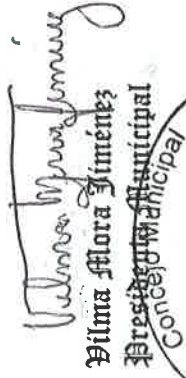 Vilma Mora Jiménez
Vilma Mora Jiménez
Presidenta Municipal
Concejo Municipal